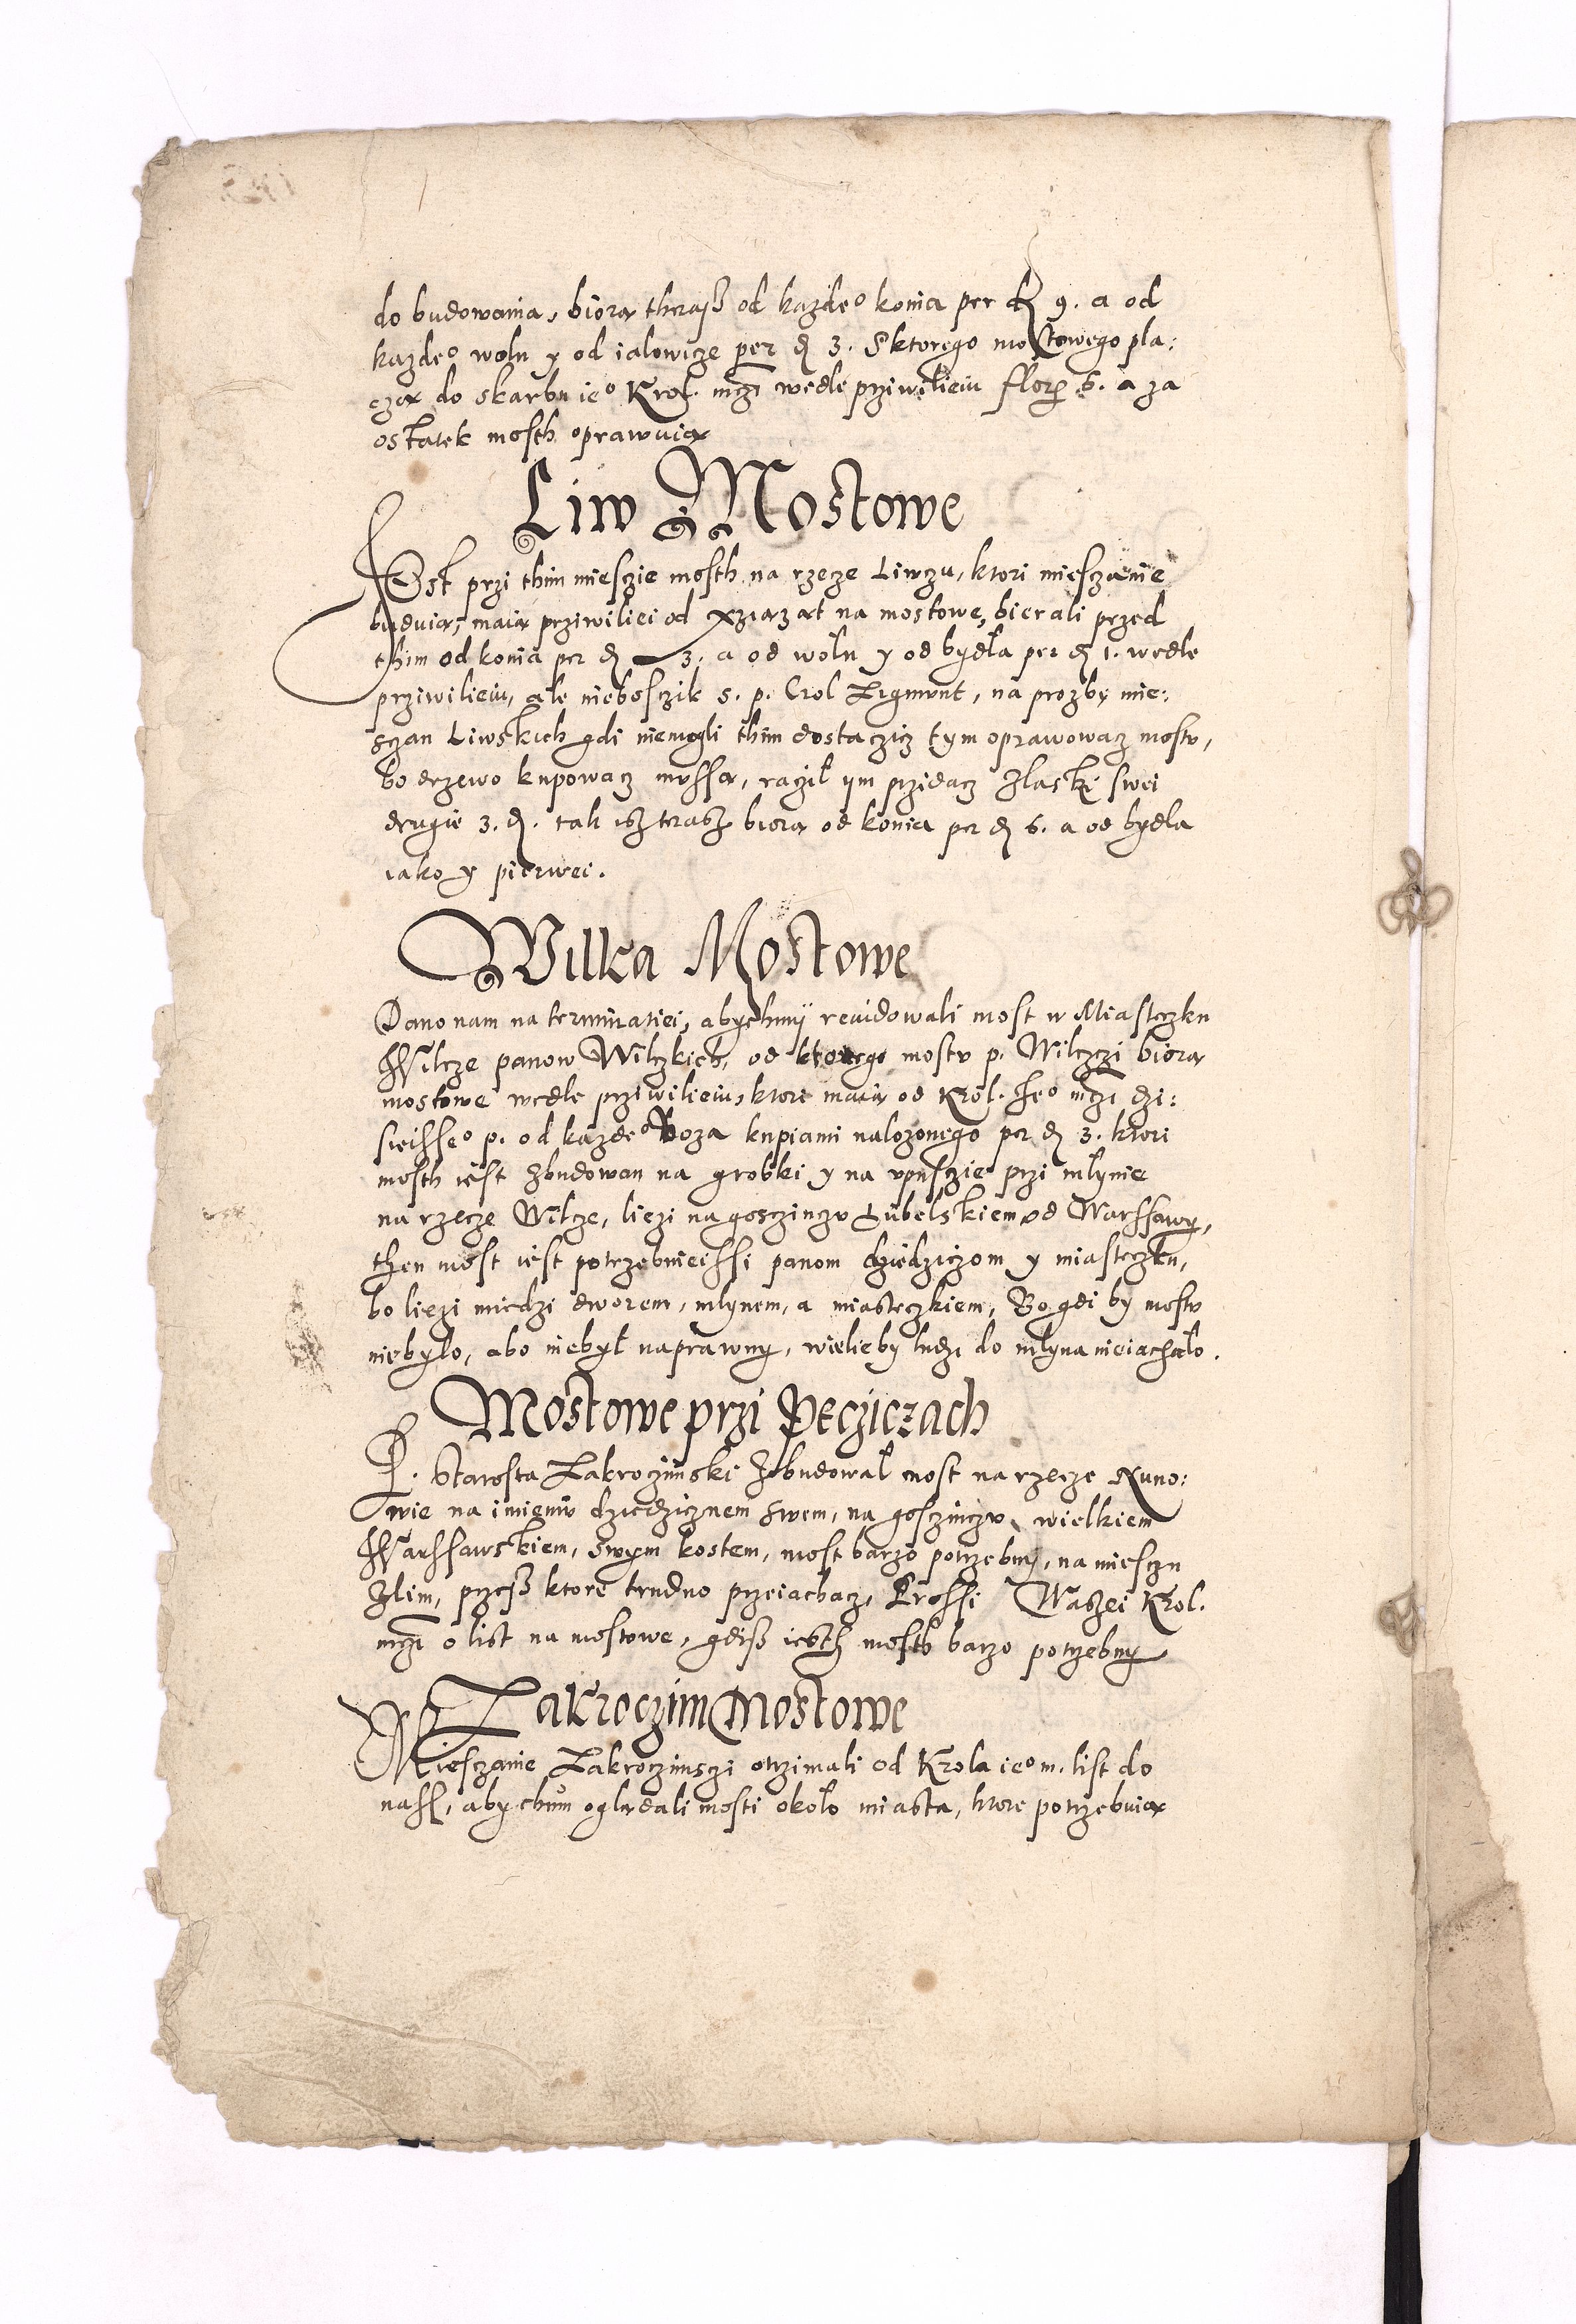 do budowania, biorą theraß od kazdeº konia per đ 9. a od
kazdeº wolu y od ialowicze per đ 3. S ktorego mostowego pla:
czą do skarbu ieº Krol. mczi wedle prziwilieiu floren 6. a za
ostatek mosth oprawuią
Liw Mostowe
Jest przi thim miesczie mosth na rzecze Liwczu, ktori miesczanie
buduią, maią prziwiliei od xziąząt na mostowe, bierali przed
thim od konia per đ 3. a od wolu y od bydła per đ 1. wedle
prziwilieiu, ale nieboszczik s. p. Crol Zigmunt, na prozby mie:
sczan Liwskich gdi niemogli thim dostaczicz tym oprawowacz mostu,
bo drzewo kupowacz mussą, raczil ym przidacz z laski swei
drugie 3. đ. tak isz terasz biorą od konia per đ 6. a od bydla
iako y pierwei.
Wilka Mostowe
Dano nam na terminatiei, abychmy reuidowali most w Miasteczku
Wilcze panow Wilczkich, od ktorego mostu p. Wilczczi biorą
mostowe wedle prziwilieiu, ktori maią od Krol. Jeº mczi dzi:
sieisseº p. od kazdeº Woza kupiami nalozonego per đ 3. ktori
mosth iest zbudowan na grobki y na upusczie przi mlynie
na rzecze Wilcze, liezi na gosczinczu Lubelskiem od Warssawy,
then most iest potrzebnieissi panom dziedziczom y miasteczku,
bo liezi miedzi dworem, mlynem, a miasteczkiem, Bo gdi by mostu
niebylo, abo niebył naprawny, wielieby ludzi do mlyna nieiachało.
Mostowe przi Peczyczach
P. Starosta Zakroczimski Zbudował most na rzecze Nuno:
wie na imieniu dziedzicznem swem, na gosczinczu wielkiem
Warssawskiem, swym kostem, most barzo potrzebny, na miesczu
zlim, przeß ktore trudno przeiachacz, Prossi Waszei Krol.
mczi o list na mostowe, gdiß iesth mosth barzo potrzebny
Zakroczim Mostowe
Miesczanie Zakroczimsczi otrzimali od Krola ieº m. list do
nass, abychmy oglądali mosti około miasta, ktore potrzebuią